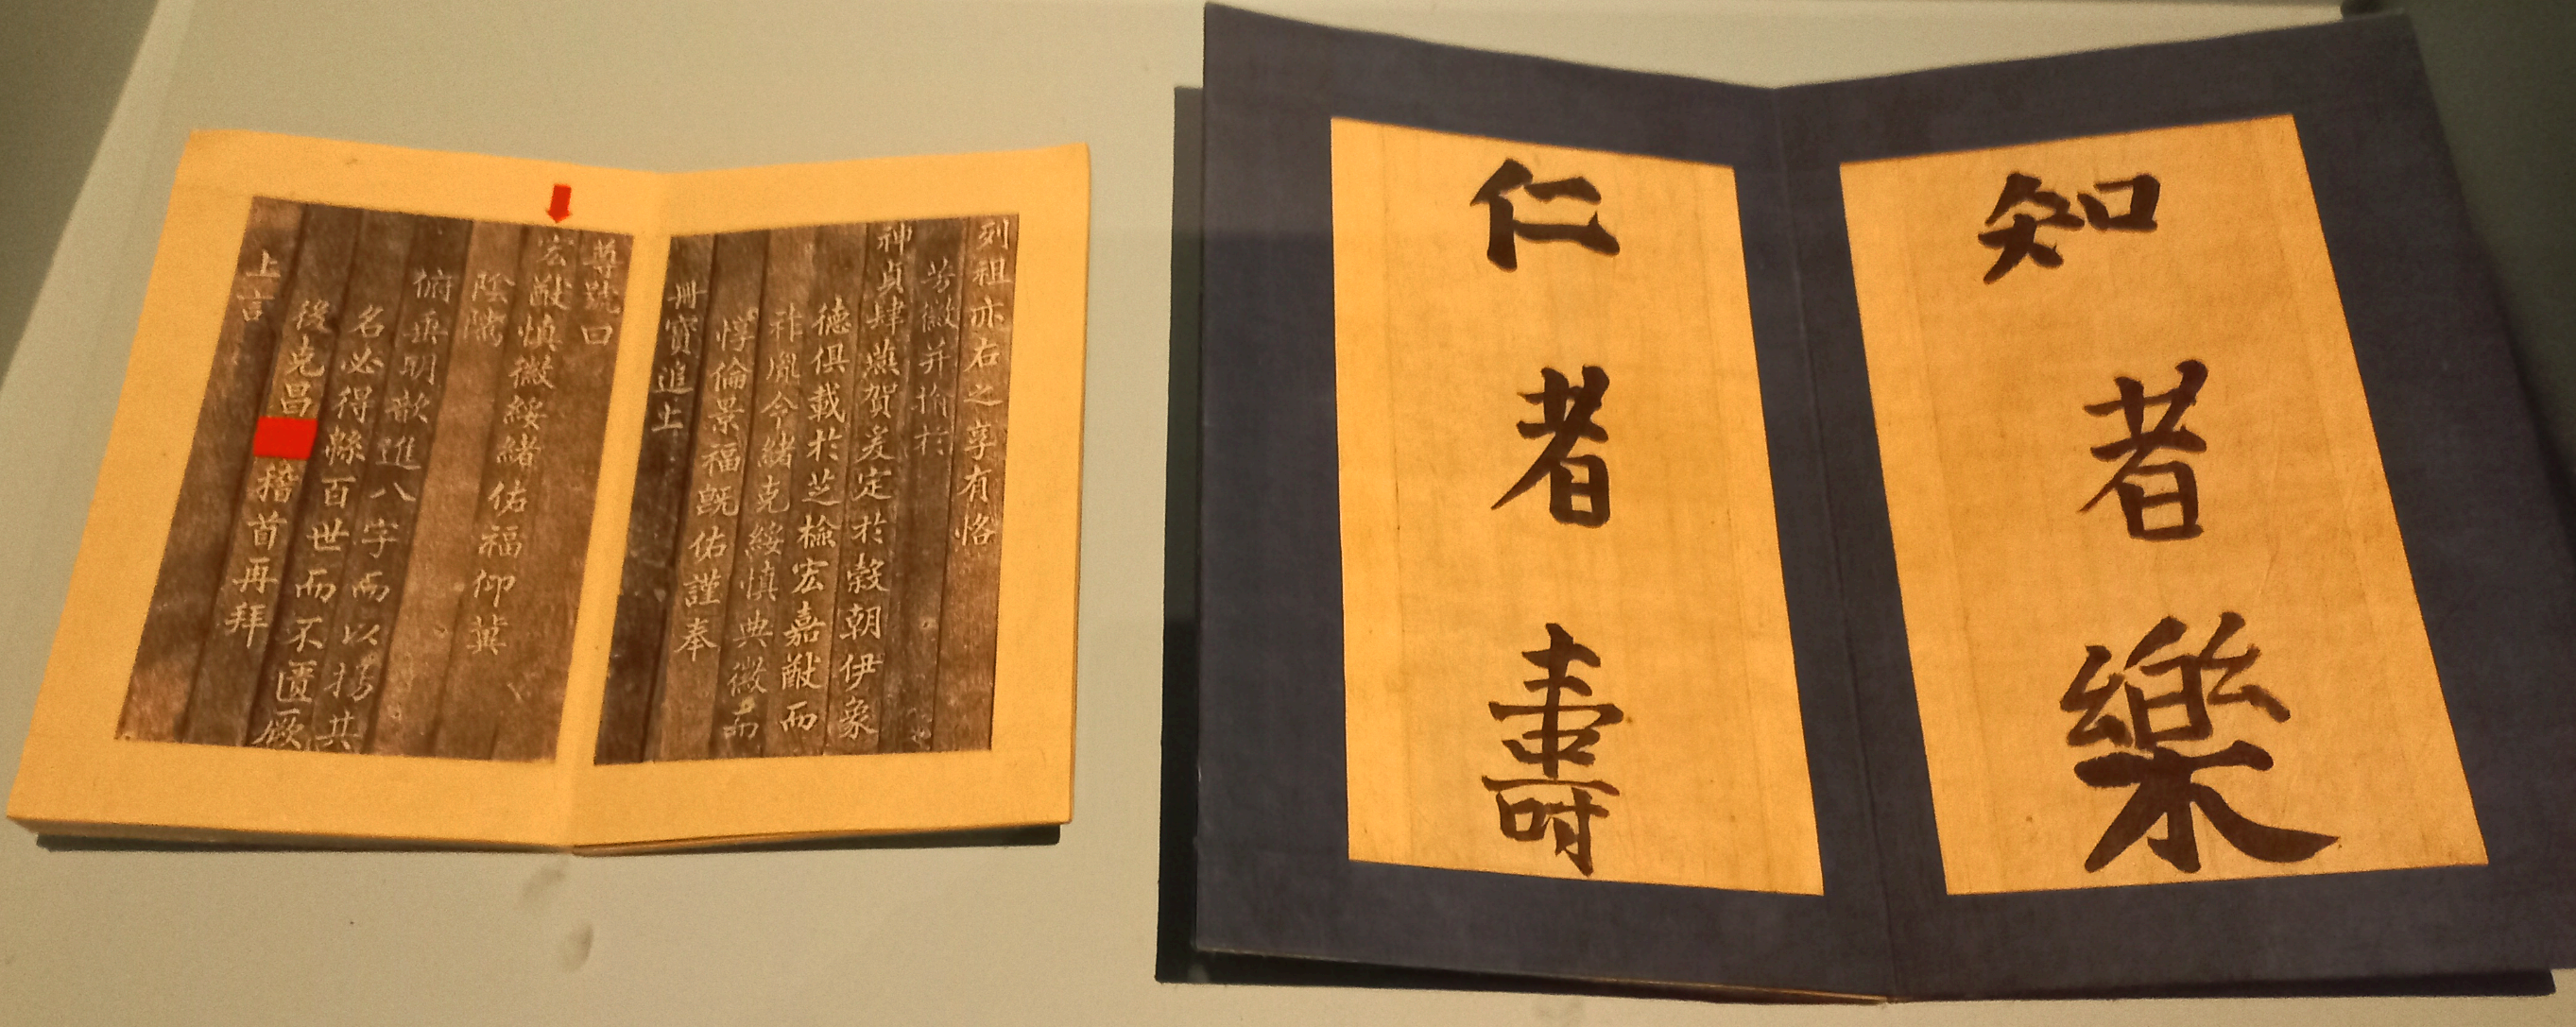 知者樂
仁者壽
列祖亦右之享有恪
芳徽并愉於
神貞肆燕賀爰定於穀朝伊彖
德俱載於芝檢宏嘉猷而
祚胤令緖克綏愼典徽而
惇倫景福旣佑謹奉
冊寶追上
尊號曰
宏猷愼徽綏緖佑福仰冀
陰隲
俯垂明歆進八字而以揚共
名必得緜百世而不匱厥
後克昌稽首再拜
上言